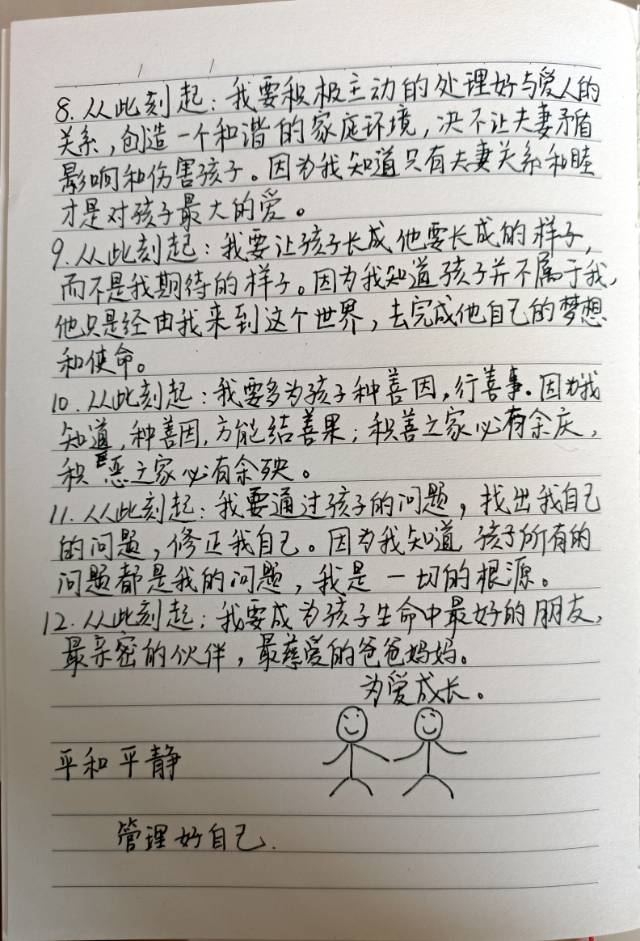 8. 从此刻起：我要积极主动的处理好与爱人的
关系，创造一个和谐的家庭环境，决不让夫妻矛盾
影响和伤害孩子。因为我知道只有夫妻关系和睦
才是对孩子最大的爱。
9. 从此刻起：我要让孩子长成他要长成的样子，
而不是我期待的样子。因为我知道孩子并不属于我，
他只是经由我来到这个世界，去完成他自己的梦想
和使命。
10. 从此刻起：我要多为孩子种善因，行善事。因为我
知道，种善因，方能结善果；积善之家必有余庆，
积恶之家必有余殃。
11. 从此刻起：我要通过孩子的问题，找出我自己
的问题，修正我自己。因为我知道 孩子所有的
问题都是我的问题，我是一切的根源。
12. 从此刻起；我要成为孩子生命中最好的朋友，
最亲密的伙伴，最慈爱的爸爸妈妈。
为爱成长。
平和平静
管理好自己.